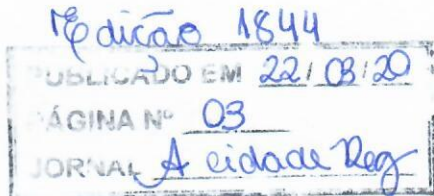 Edição 1844
PUBLICADO EM 22/08/20
PÁGINA Nº 03
JORNAL A cidade Reg